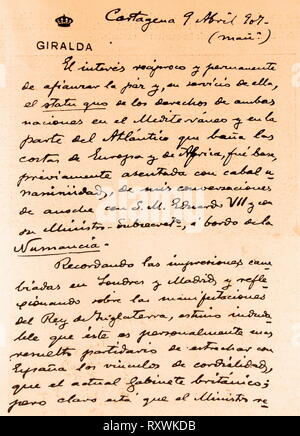 Cartagena 9 Abril 907-
(mañª.)
GIRALDA
El interés recíproco y permanente
de afianzar la paz y, en servicio de ella,
el statu quo de los derechos de ambas
naciones en el Mediterráneo y en la
parte del Atlántico que baña las
costas de Europa y de Africa, fué base,
previamente asentada con cabal u-
nanimidad, de mis conversaciones
de anoche con S. M. Eduardo VII y con
su Ministro a bordo de la
Numancia.
Recordando las impresiones cam-
biadas en Londres y Madrid, y refle-
xionando sobre las manifestaciones
del Rey de Inglaterra, estimo induda-
ble que éste es personalmente muy
resuelto partidario de estrechar con
España los vínculos de cordialidad,
que el actual gabinete británico;
pero claro está que el Ministro re-
alamy
Image ID: RXWKDB
www.alamy.com